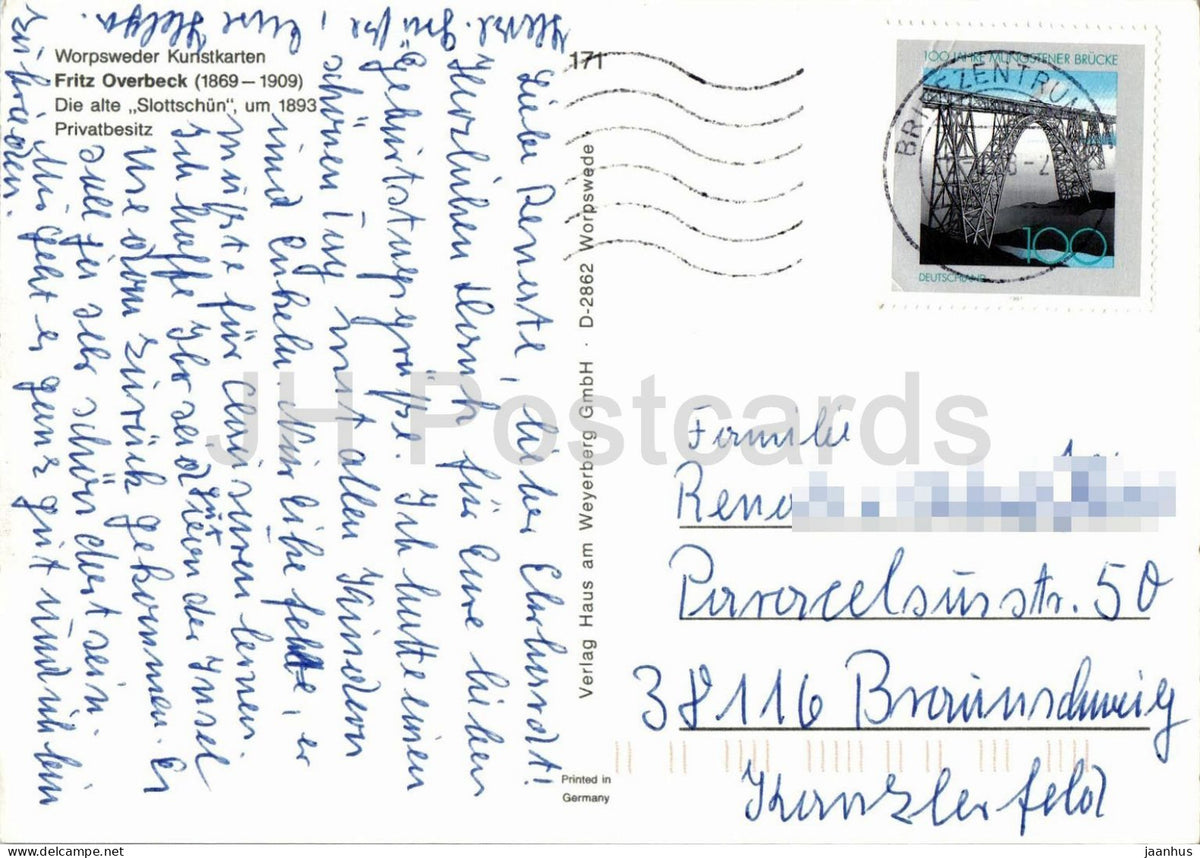 Worpsweder Kunstkarten
Fritz Overbeck (1869–1909)
Die alte „Slottschün", um 1893
Privatbesitz
171
Liebe Renate, lieber Ehrhardt!
Herzlichen Dank für Eure lieben
Geburtstagsgrüße. Ich hatte einen
schönen Tag mit allen Kindern
und Enkeln. Nur Eike fehlte, er
mußte für Clausuren lernen.
Ich hoffe Ihr seid gut von der Insel
Usedom zurück gekommen. Es
soll ja sehr schön dort sein.
Mir geht es ganz gut und ich bin
zufrieden.
Herzl. Grüße, Eure Helga.
Verlag Haus am Weyerberg GmbH · D-2862 Worpswede
Printed in
Germany
100 JAHRE MÜNGSTENER BRÜCKE
100
DEUTSCHLAND
BRIEFZENTRUM
Familie
Rena
Paracelsusstr. 50
38116 Braunschweig
Kanzlerfeld
JH Postcards
jaanhus